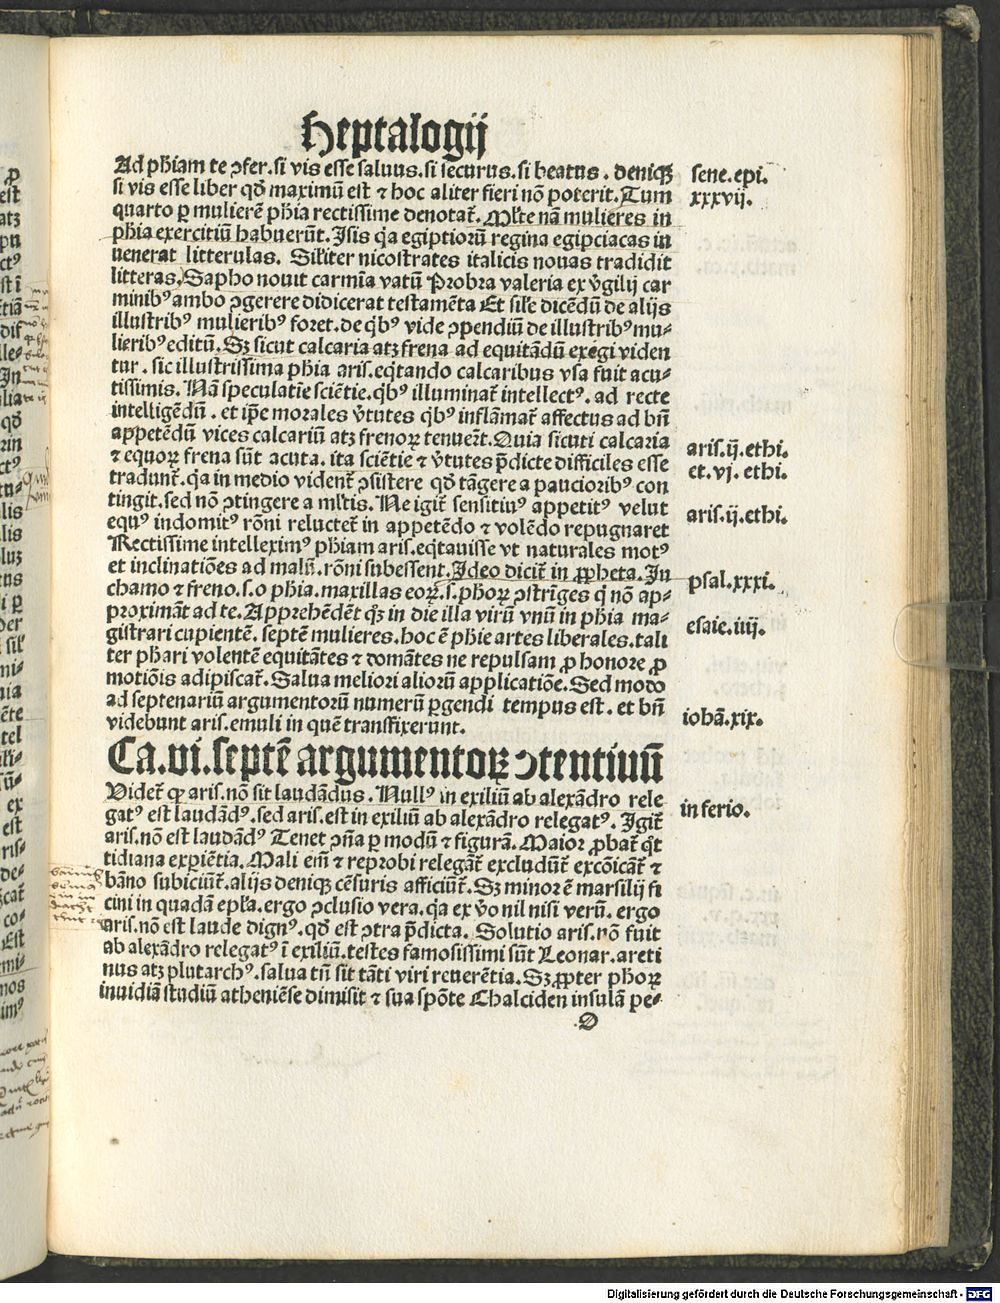 Heptalogij
Ad phiam te ꝯfer. si vis esse saluus. si securus. si beatus. deniqꝫ
si vis esse liber qđ maximū est ⁊ hoc aliter fieri nō poterit. Tum
quarto ꝑ mulierē phia rectissime denotat᷑. Ml̄te nā mulieres in
phia exercitiū habuerūt. Isis q̄a egiptiorū regina egipciacas in
uenerat litterulas. Sil̄iter nicostrates italicis nouas tradidit
litteras. Sapho nouit carmīa vatū Probra valeria ex v̄gilij car
minibꝰ ambo ꝯgerere didicerat testamēta Et sil̄e dicēdū de alijs
illustribꝰ mulieribꝰ foret. de q̇bꝰ vide ꝯpendiū de illustribꝰ mu⸗
lieribꝰ editū. Sꝫ sicut calcaria atꝫ frena ad equitādū exegi viden
tur. sic illustrissima phia aris. eq̇tando calcaribus vsa fuit acu⸗
tissimis. Nā speculatīe sciētie. q̇bꝰ illuminat᷑ intellectꝰ. ad recte
intelligēdū. et ip̄e morales v̄tutes q̇bꝰ inflāmat᷑ affectus ad bn̄
appetēdū vices calcariū atꝫ frenoꝝ tenuer̄t. Quia sicuti calcaria
⁊ equoꝝ frena sūt acuta. ita sciētie ⁊ v̄tutes p̄dicte difficiles esse
tradunt᷑. q̄a in medio vident᷑ ꝯsistere qđ tāgere a paucioribꝰ con
tingit. sed nō ꝯtingere a ml̄tis. Ne igit᷑ sensitiuꝰ appetitꝰ velut
equꝰ indomitꝰ rōni reluctet᷑ in appetēdo ⁊ volēdo repugnaret
Rectissime intelleximꝰ phiam aris. eq̇tauisse vt naturales motꝰ
et inclinatiōes ad malū. rōni subessent. Ideo dicit᷑ in ꝓpheta. In
chamo ⁊ freno. s. o phia. maxillas eoꝝ. s. phoꝝ ꝯstrīges q̄ nō ap⸗
proximāt ad te. Apprehēdēt qꝫ in die illa virū vnū in phia ma⸗
gistrari cupientē. septē mulieres. hoc ē phie artes liberales. tali
ter phari volentē equitātes ⁊ domātes ne repulsam ꝓ honore ꝓ
motiōis adipiscat᷑. Salua meliori aliorū applicatiōe. Sed modo
ad septenariū argumentorū numerū ꝑgendi tempus est. et bn̄
videbunt aris. emuli in quē transfixerunt.
Ca. vi. septē argumentoꝝ ꝯtentiuū
Videt᷑ ꝙ aris. nō sit laudādus. Nullꝰ in exiliū ab alexādro rele
gatꝰ est laudādꝰ. sed aris. est in exiliū ab alexādro relegatꝰ. Igit᷑
aris. nō est laudādꝰ Tenet ꝯn̄a ꝑ modū ⁊ figurā. Maior ꝓbat᷑ q̊t
tidiana experiētia. Mali em̄ ⁊ reprobi relegāt᷑ excludūt᷑ excōicāt᷑ ⁊
bāno subiciūt᷑. alijs deniqꝫ cēsuris afficiūt᷑. Sꝫ minor ē marsilij fi
cini in quadā epl̄a. ergo ꝯclusio vera. q̄a ex v̄o nil nisi verū. ergo
aris. nō est laude dignꝰ. qđ est ꝯtra p̄dicta. Solutio aris. nō fuit
ab alexādro relegatꝰ ī exiliū. testes famosissimi sūt Leonar. areti
nus atꝫ plutarchꝰ. salua tn̄ sit tāti viri reuerētia. Sꝫ ꝓpter phoꝝ
inuidiā studiū atheniēse dimisit ⁊ sua spōte Chalciden insulā pe⸗
D
sene. epi.
xxxvij.
aris. ij. ethi.
et. vj. ethi.
aris. ij. ethi.
psal. xxxi.
esaie. iiij.
iohā. xix.
in ferio.
Digitalisierung gefördert durch die Deutsche Forschungsgemeinschaft - DFG